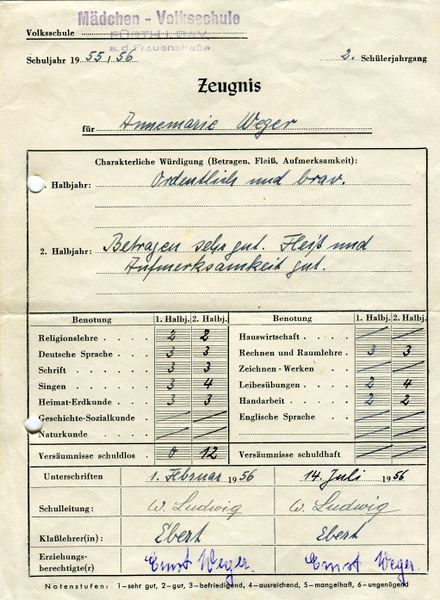 Mädchen - Volksschule
Volksschule FÜRTH i. BAY.
a.d. Frauenstraße
Schuljahr 1955/56 2. Schülerjahrgang
Zeugnis
für Annemarie Weger
Charakterliche Würdigung (Betragen, Fleiß, Aufmerksamkeit):
. Halbjahr: Ordentlich und brav.
2. Halbjahr: Betragen sehr gut. Fleiß und
Aufmerksamkeit gut.
Benotung 1. Halbj. 2. Halbj. Benotung 1. Halbj. 2. Halbj.
Religionslehre . . 2 2 Hauswirtschaft . . . . / /
Deutsche Sprache . . 3 3 Rechnen und Raumlehre . 3 3
Schrift . . . . 3 3 Zeichnen - Werken . . / /
Singen . . . . 3 4 Leibesübungen . . . . 2 4
Heimat-Erdkunde . . 3 3 Handarbeit . . . . 2 2
Geschichte-Sozialkunde / / Englische Sprache . . . / /
Naturkunde . . . / /
Versäumnisse schuldlos 0 12 Versäumnisse schuldhaft / /
Unterschriften 1. Februar 1956 14. Juli 1956
Schulleitung: W. Ludwig W. Ludwig
Klaßlehrer(in): Ebert Ebert
Erziehungs-
berechtigte(r) Ernst Weger. Ernst Weger.
Notenstufen: 1–sehr gut, 2–gut, 3–befriedigend, 4–ausreichend, 5–mangelhaft, 6–ungenügend